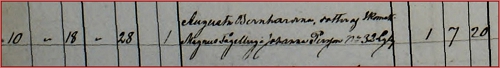 Augusta Bernhardina, dotter af Skomak.
10 " 18 " 28 1 Magnus Fagelberg o Johanna Persson No 33 1 7 20